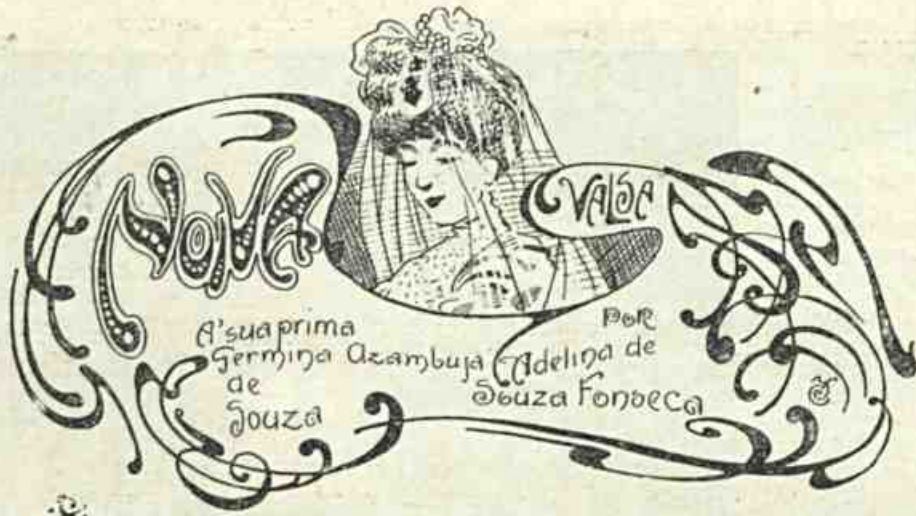 NOIVA
VALSA
A' sua prima
Germina Azambuja
de
Souza
POR
Adelina de
Souza Fonseca